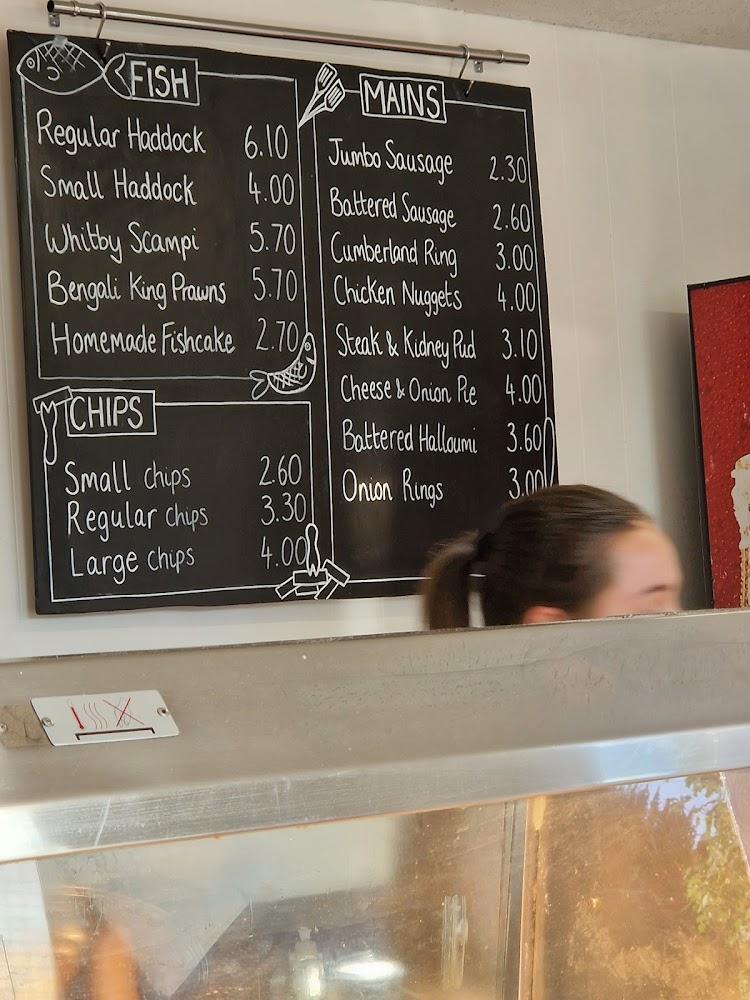 FISH
Regular Haddock 6.10
Small Haddock 4.00
Whitby Scampi 5.70
Bengali King Prawns 5.70
Homemade Fishcake 2.70
CHIPS
Small chips 2.60
Regular chips 3.30
Large chips 4.00
MAINS
Jumbo Sausage 2.30
Battered Sausage 2.60
Cumberland Ring 3.00
Chicken Nuggets 4.00
Steak & Kidney Pud 3.10
Cheese & Onion Pie 4.00
Battered Halloumi 3.60
Onion Rings 3.00